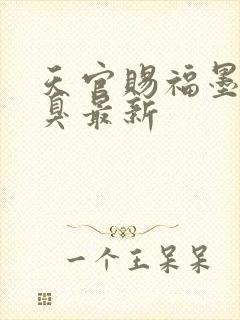 天官赐福墨
臭最新
一个王呆呆